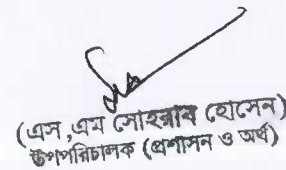 (এস,এম সোহরাব হোসেন)
উপপরিচালক (প্রশাসন ও অর্থ)